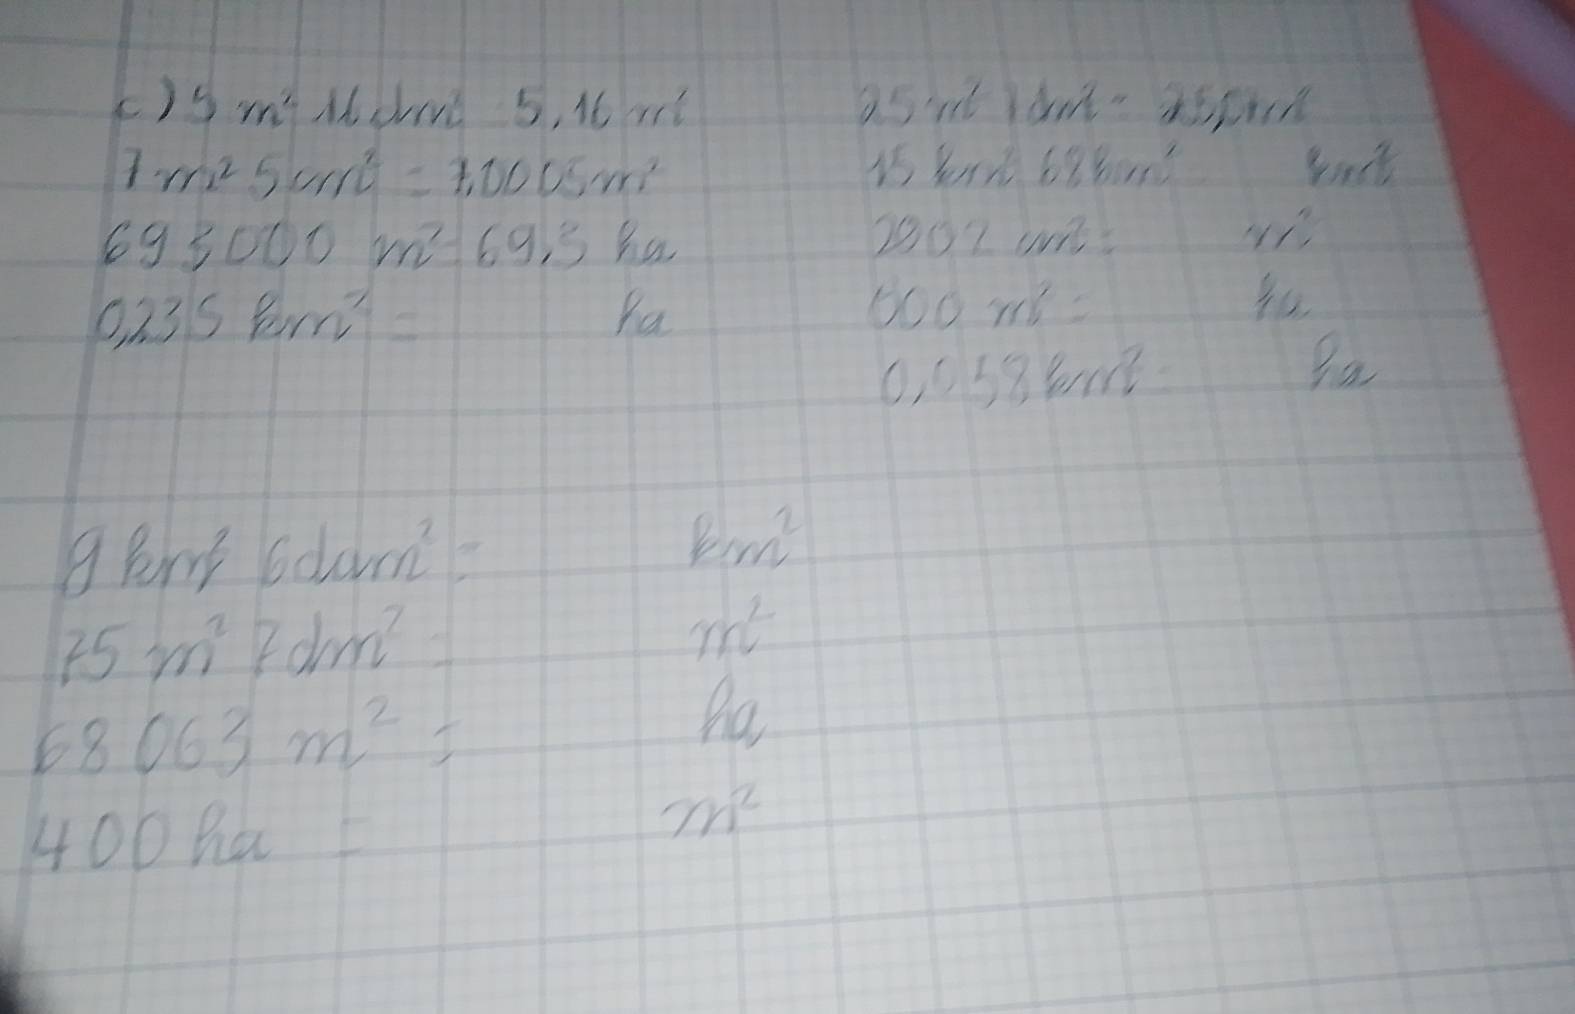 c) 5 m² 16 dm² 5,16 m²
7 m² 5 cm² = 7,0005 m²
693000 m² 69,3 ha
0,235 km² = ha
25 m² 1 dm² =
15 km² 68 km²
2902 cm² = m²
m² = ha
0,058 km² ha
9 km² 6 dam² = km²
75 m² 7 dm² = m²
68 063 m² = ha
400 ha = m²